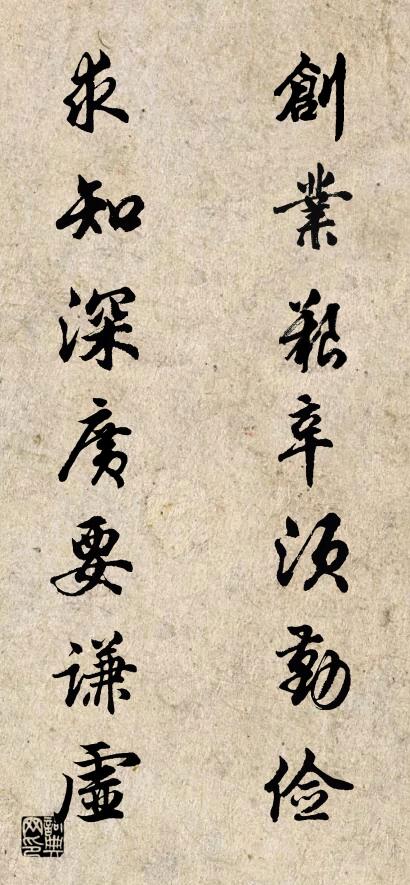 創業艱辛須勤儉
求知深廣要謙虛